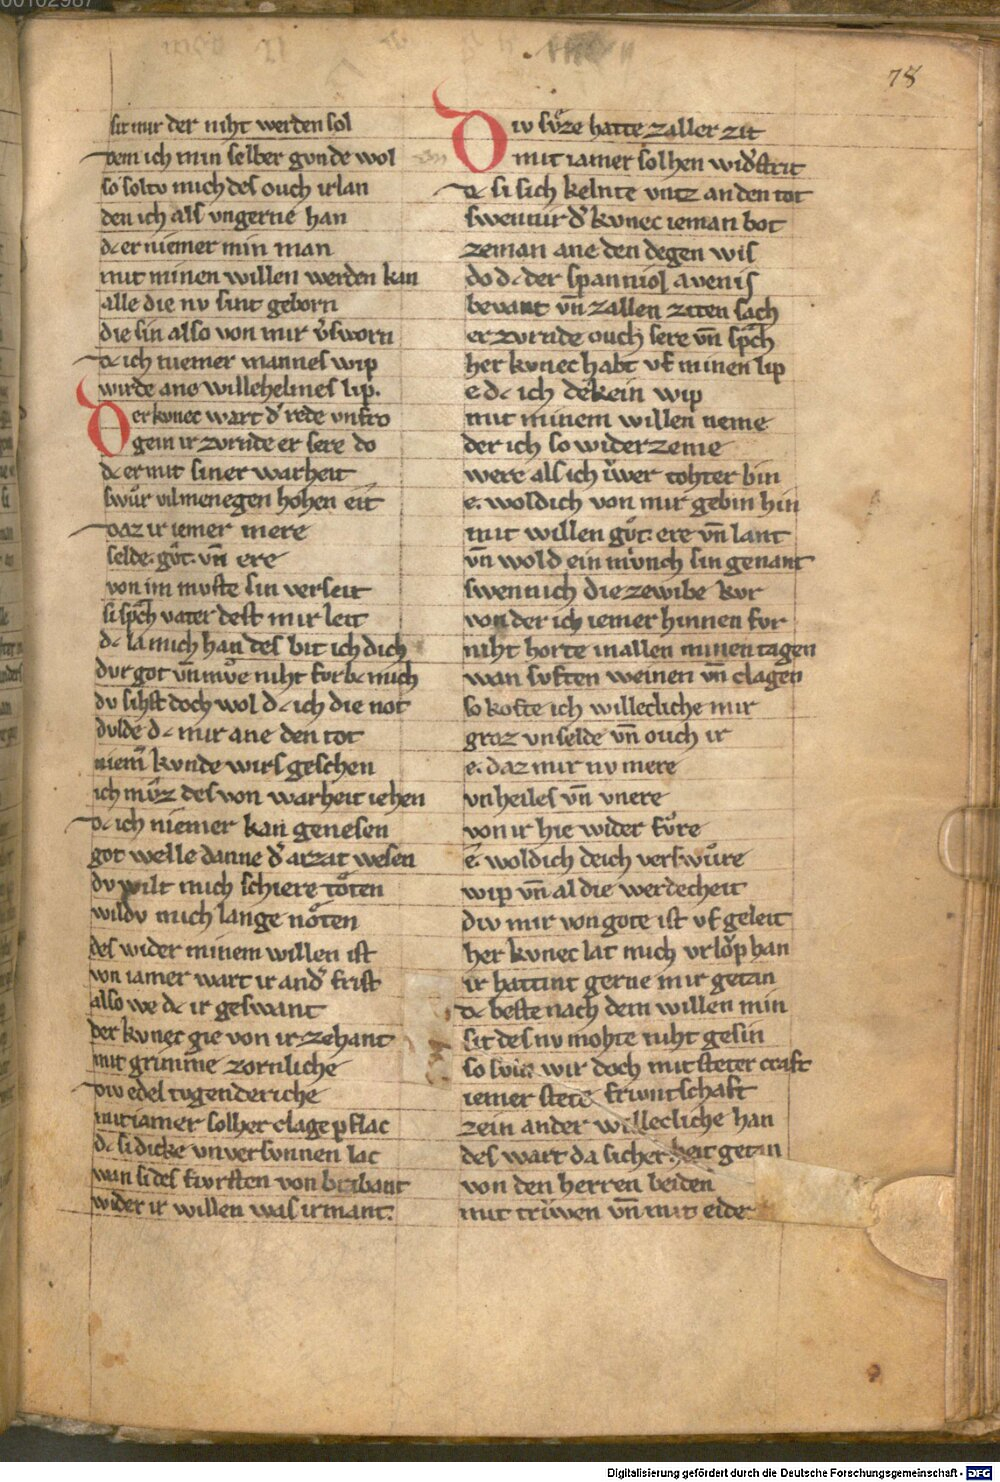 00102987
78
sit mir der niht werden sol
dem ich min selber gunde wol
so soltu mich des ouch irlan
den ich als ungerne han
dc er niemer min man
mit minen willen werden kan
alle die nv sint geborn
die sin also von mir v̓sworn
dc ich niemer mannes wip
wirde ane willehelmes lip.
Der kvnec wart d̓ rede vnfro
gein ir zvrnde er sere do
dc er mit siner warheit
swůr vil menegen hohen eit
daz ir iemer mere
selde. gůt. vn̄ ere
von im mvste sin verseit
si spͨh vater dest mir leit
dc la mich han des bit ich dich
dvr got vn̄ mvͤe niht fvrbc mich
dv sihst doch wol dc ich die not
dvlde dc mir ane den tot
niem̓ kvnde wirs geschen
ich mvͤz des von warheit iehen
dc ich niemer kan genesen
got welle danne d̓ arzat wesen
dv wilt mich schiere toͤten
wildv mich lange noͤten
des wider minem willen ist
von iamer wart ir and̓ frist
also we dc ir geswant
der kvnec gie von ir zehant
mit grimme zornliche
div edel tvgenderiche
mit iamer solher clage pflac
dc si dicke vnversvnnen lac
wan si des fivrsten von brabant
wider ir willen was irmant.
Div svͤze hatte zaller zit
mit iamer solhen wid̓strit
dc si sich kelnte vntz an den tot
swenn ir d̓ kvnec ieman bot
zeman ane den degen wis
do dc der spanniol avenis
bevant vn̄ zallen ziten sach
er zvrnde ouch sere vn̄ spͨh
her kvnec habt vf minen lip
e dc ich dekein wip
mit minem willen neme
der ich so widerzeme
were als ich v̓wer tohter bin
e. woldich von mir gebin hin
mit willen gůt. ere vn̄ lant
vn̄ wold ein mv̓nch sin genant
swenn ich die zewibe kvr
von der ich iemer hinnen fvr
niht horte in allen minen tagen
wan svften weinen vn̄ clagen
so kofte ich willecliche mir
groz vnselde vn̄ ouch ir
e. daz mir nv mere
vnheiles vn̄ vnere
von ir hie wider fvͤre
e. woldich deich verswůre
wip vn̄ al die werdecheit
div mir von gote ist vf geleit
her kvnec lat mich vrloͮp han
ir hattint gerne mir getan
dc beste nach dem willen min
sit des nv mohte niht gesin
so svln wir doch mit steter craft
iemer stete frivntschaft
zein ander willecliche han
des wart da sicherheit getan
von den herren beiden
mit trv̓wen vn̄ mit eide
Digitalisierung gefördert durch die Deutsche Forschungsgemeinschaft - DFG